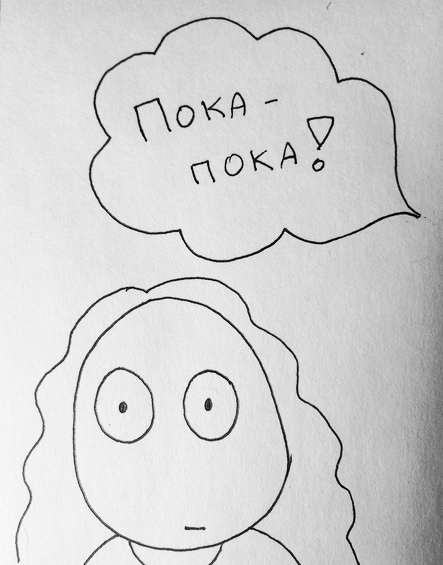 Пока -
пока!